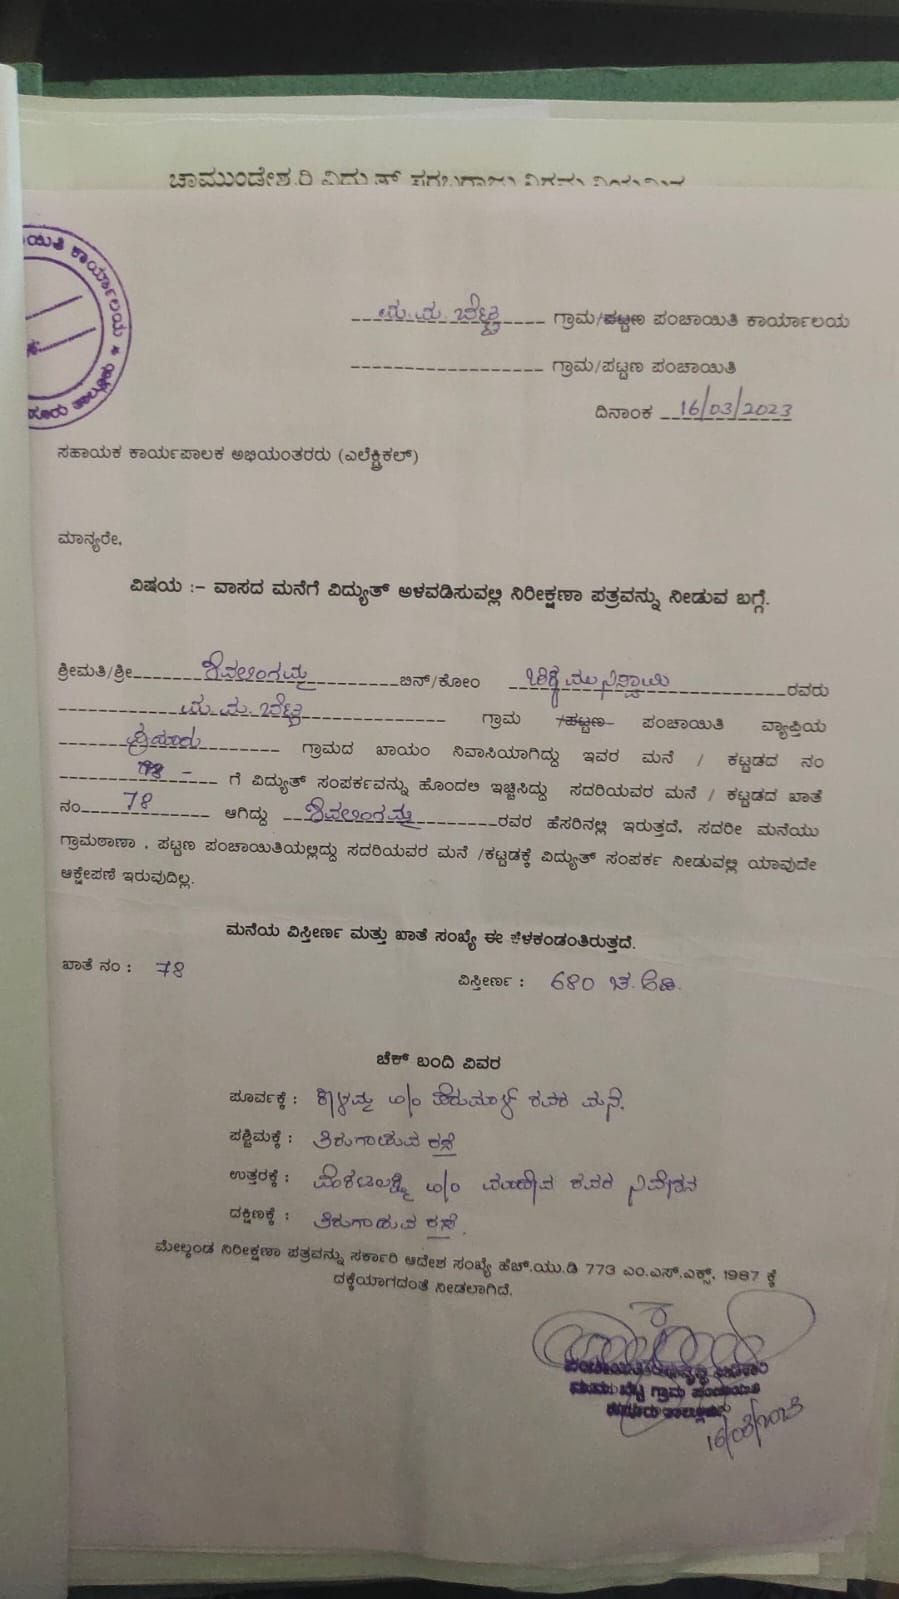 ಚಾಮುಂಡೇಶ್ವರಿ ವಿದ್ಯುತ್
ಕಾರ್ಯಾಲಯ
ಮ.ಮ. ಬೆಟ್ಟ ಗ್ರಾಮ/ಪಟ್ಟಣ ಪಂಚಾಯಿತಿ ಕಾರ್ಯಾಲಯ
ಗ್ರಾಮ/ಪಟ್ಟಣ ಪಂಚಾಯಿತಿ
ದಿನಾಂಕ 16/03/2023
ಸಹಾಯಕ ಕಾರ್ಯಪಾಲಕ ಅಭಿಯಂತರರು (ಎಲೆಕ್ಟ್ರಿಕಲ್)
ಮಾನ್ಯರೇ,
ವಿಷಯ :- ವಾಸದ ಮನೆಗೆ ವಿದ್ಯುತ್ ಅಳವಡಿಸುವಲ್ಲಿ ನಿರೀಕ್ಷಣಾ ಪತ್ರವನ್ನು ನೀಡುವ ಬಗ್ಗೆ.
ಶ್ರೀಮತಿ/ಶ್ರೀ ಶಿವಲಿಂಗಮ್ಮ ಬಿನ್/ಕೋಂ ರವರು
ಮ.ಮ. ಬೆಟ್ಟ ಗ್ರಾಮ /ಪಟ್ಟಣ ಪಂಚಾಯಿತಿ ವ್ಯಾಪ್ತಿಯ
ಗ್ರಾಮದ ಖಾಯಂ ನಿವಾಸಿಯಾಗಿದ್ದು ಇವರ ಮನೆ / ಕಟ್ಟಡದ ನಂ
ಗೆ ವಿದ್ಯುತ್ ಸಂಪರ್ಕವನ್ನು ಹೊಂದಲಿ ಇಚ್ಚಿಸಿದ್ದು ಸದರಿಯವರ ಮನೆ / ಕಟ್ಟಡದ ಖಾತೆ
ನಂ 78 ಆಗಿದ್ದು ಶಿವಲಿಂಗಮ್ಮ ರವರ ಹೆಸರಿನಲ್ಲಿ ಇರುತ್ತದೆ, ಸದರೀ ಮನೆಯು
ಗ್ರಾಮಠಾಣಾ , ಪಟ್ಟಣ ಪಂಚಾಯಿತಿಯಲ್ಲಿದ್ದು ಸದರಿಯವರ ಮನೆ /ಕಟ್ಟಡಕ್ಕೆ ವಿದ್ಯುತ್ ಸಂಪರ್ಕ ನೀಡುವಲ್ಲಿ ಯಾವುದೇ
ಆಕ್ಷೇಪಣೆ ಇರುವುದಿಲ್ಲ.
ಮನೆಯ ವಿಸ್ತೀರ್ಣ ಮತ್ತು ಖಾತೆ ಸಂಖ್ಯೆ ಈ ಕೆಳಕಂಡಂತಿರುತ್ತದೆ.
ಖಾತೆ ನಂ : 78
ವಿಸ್ತೀರ್ಣ : 680 ಚ.ಅಡಿ.
ಚೆಕ್ ಬಂದಿ ವಿವರ
ಪೂರ್ವಕ್ಕೆ : ಮನೆ.
ಪಶ್ಚಿಮಕ್ಕೆ : ತಿರುಗಾಡುವ ರಸ್ತೆ
ಉತ್ತರಕ್ಕೆ : ನಿವೇಶನ
ದಕ್ಷಿಣಕ್ಕೆ : ತಿರುಗಾಡುವ ರಸ್ತೆ.
ಮೇಲ್ಕಂಡ ನಿರೀಕ್ಷಣಾ ಪತ್ರವನ್ನು ಸರ್ಕಾರಿ ಆದೇಶ ಸಂಖ್ಯೆ ಹೆಚ್.ಯು.ಡಿ 773 ಎಂ.ಎಸ್.ಎಕ್ಸ್. 1987 ಕ್ಕೆ
ದಕ್ಕೆಯಾಗದಂತೆ ನೀಡಲಾಗಿದೆ.
ಗ್ರಾಮ ಪಂಚಾಯಿತಿ
16/03/2023